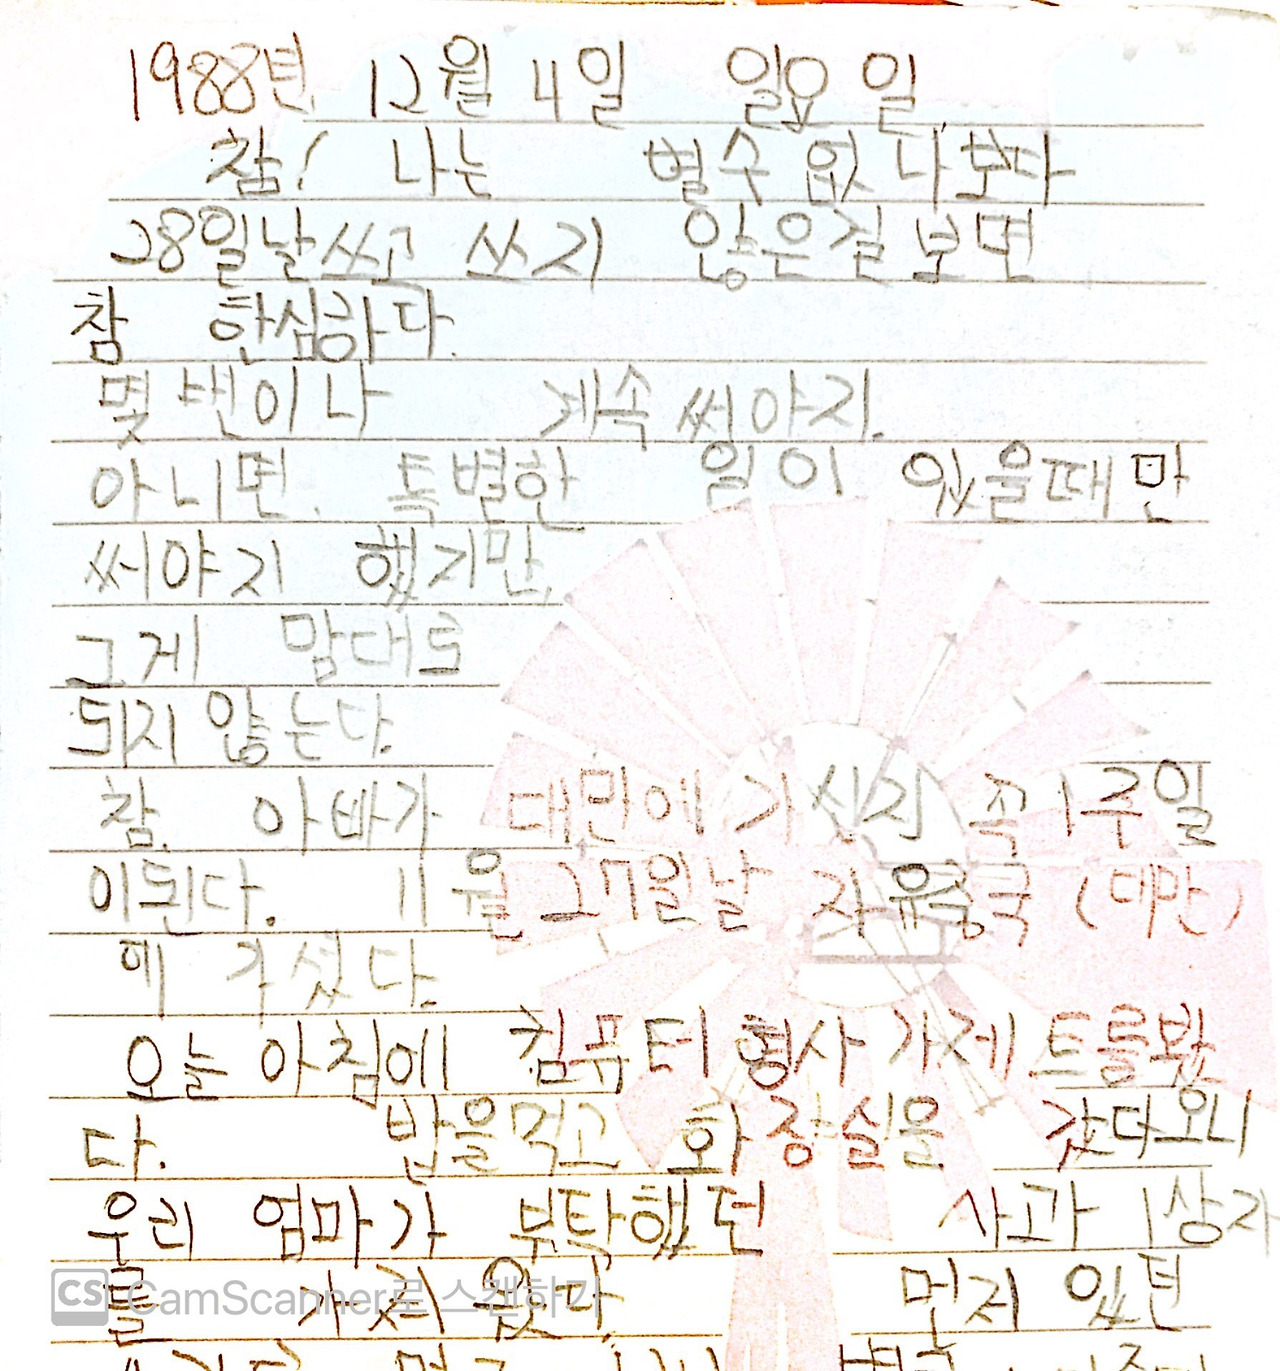 1988년 12월 4일 일요일
참! 나는 별수 없나보다
28일날 쓰고 쓰지 않은걸 보면
참 한심하다.
몇 번이나 계속 써야지.
아니면. 특별한 일이 있을때만
써야지 했지만,
그게 맘대로
되지 않는다.
참. 아빠가 대만에 가신지 꼭 1주일
이된다. 11월 27일날 자유중국 (대만)
에 가셨다.
오늘 아침에 컴퓨터 형사 가제트를봤
다. 밥을먹고 화장실을 갔다오니
우리 엄마가 부탁했던 사과 1상자
를 가져왔다. 먼저 있던
CS CamScanner로 스캔하기